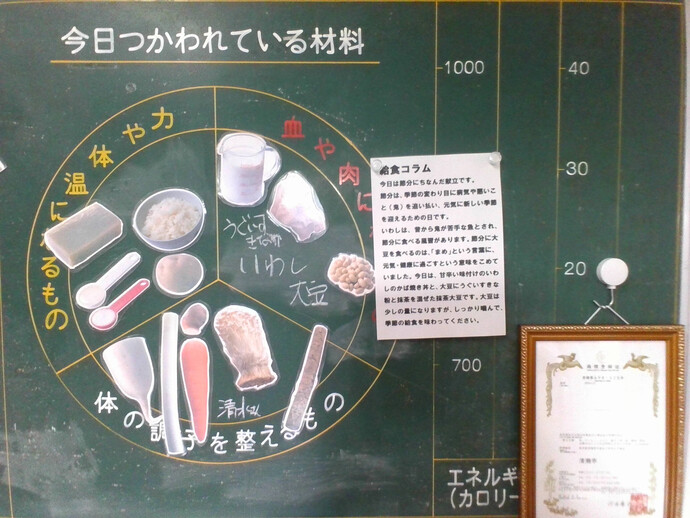 今日つかわれている材料
体や力
温
るもの
血や肉に
うぐいす
きなこ
いわし
大豆
清水
体の調子を整えるもの
給食コラム
今日は節分にちなんだ献立です。
節分は、季節の変わり目に病気や悪いこ
と（鬼）を追い払い、元気に新しい季節
を迎えるための日です。
いわしは、昔から鬼が苦手な魚とされ、
節分に食べる風習があります。節分に大
豆を食べるのは、「まめ」という言葉に、
元気・健康に過ごすという意味をこめて
いました。今日は、甘辛い味付けのいわ
しのかば焼き丼と、大豆にうぐいすきな
粉と抹茶を混ぜた抹茶大豆です。大豆は
少しの量になりますが、しっかり噛んで、
季節の給食を味わってください。
1000
40
30
20
700
エネルギ
（カロリー